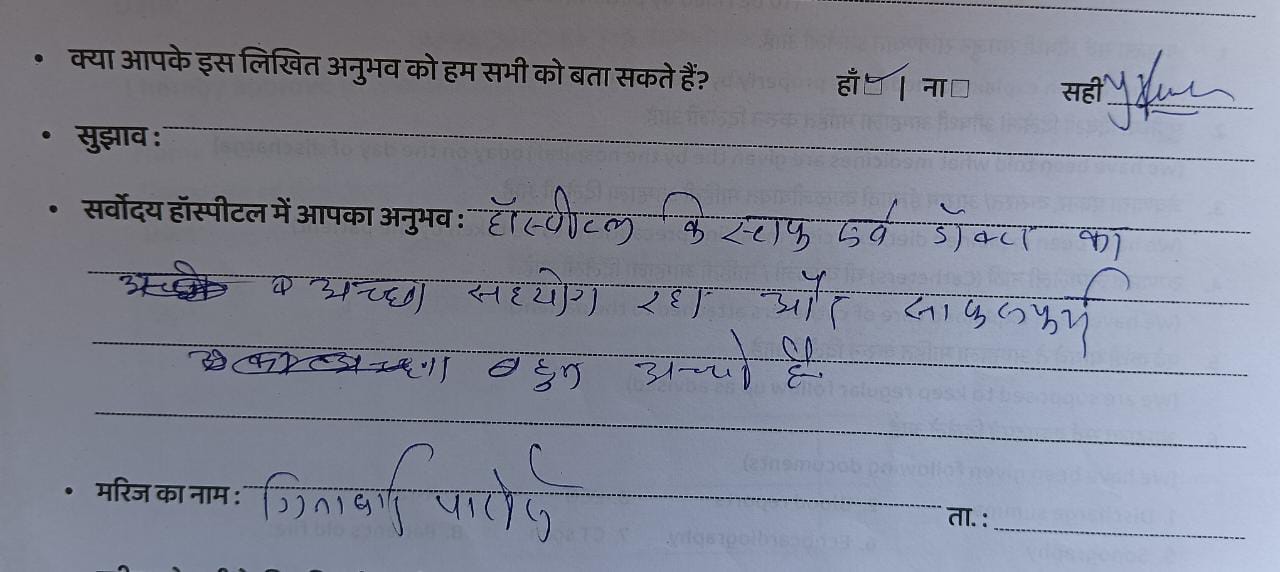 • क्या आपके इस लिखित अनुभव को हम सभी को बता सकते हैं? हाँ ☑ | ना □ सही
• सुझाव :
• सर्वोदय हॉस्पीटल में आपका अनुभव : हॉस्पीटल कि स्टाफ एवं डॉक्टर का
व अच्छा सहयोग रहा और
बहुत अच्छी है.
• मरिज का नाम :
ता. :